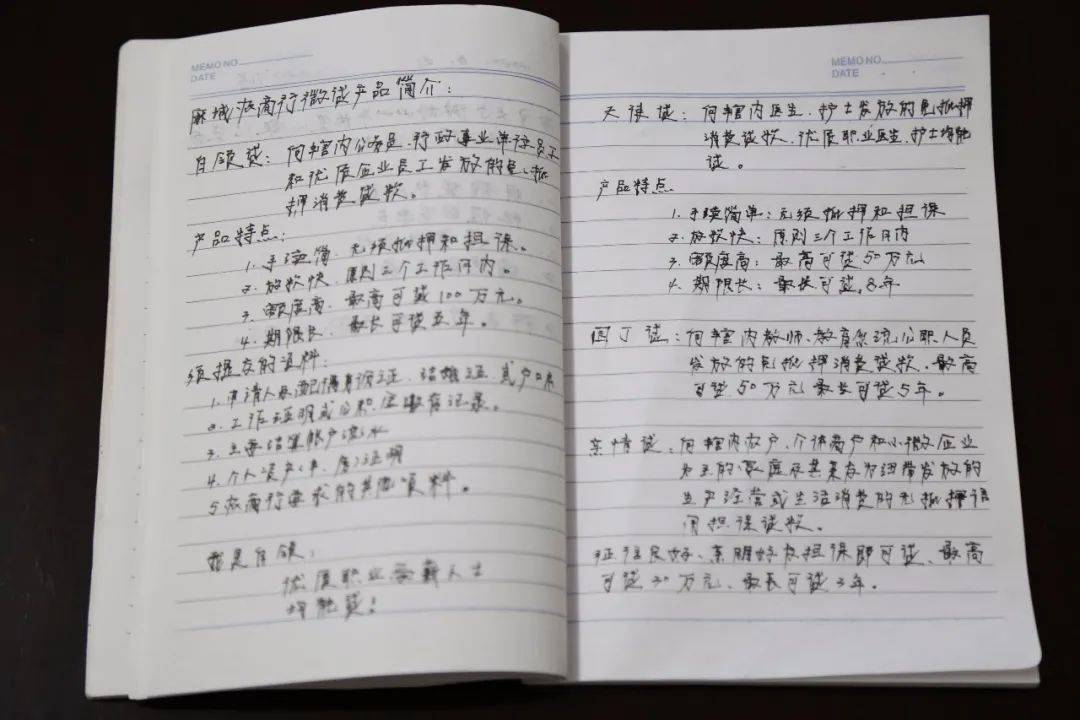 MEMO NO.
DATE
麻城农商行微贷产品简介：
白领贷：向辖内公务员、行政事业单位员工
和优质企业员工发放的免抵
押消费贷款。
产品特点：
1. 手续简、无须抵押和担保。
2. 放款快、原则三个工作日内。
3. 额度高、最高可贷100万元。
4. 期限长、最长可贷五年。
须提交的资料：
1. 申请人及配偶身份证、结婚证、或户口本
2. 工作证明或公积金缴存记录。
3. 主要结算账户流水
4. 个人资产证明
5. 农商行要求的其他资料。
我是白领：
优质职业受薪人士
均能贷！
MEMO NO.
DATE
天使贷：向辖内医生、护士发放的免抵押
消费贷款、优质职业医生、护士均能
贷。
产品特点
1. 手续简单：无须抵押和担保
2. 放款快：原则三个工作日内
3. 额度高：最高可贷50万元
4. 期限长：最长可贷8年
园丁贷：向辖内教师、教育系统公职人员
发放的免抵押消费贷款、最高
可贷50万元最长可贷5年。
亲情贷：向辖内农户、个体商户和小微企业
为主的家庭及其亲友为纽带发放的
生产经营或生活消费的无抵押
担保贷款。
征信良好、亲朋好友担保即可贷、最高
可贷30万元、最长可贷3年。